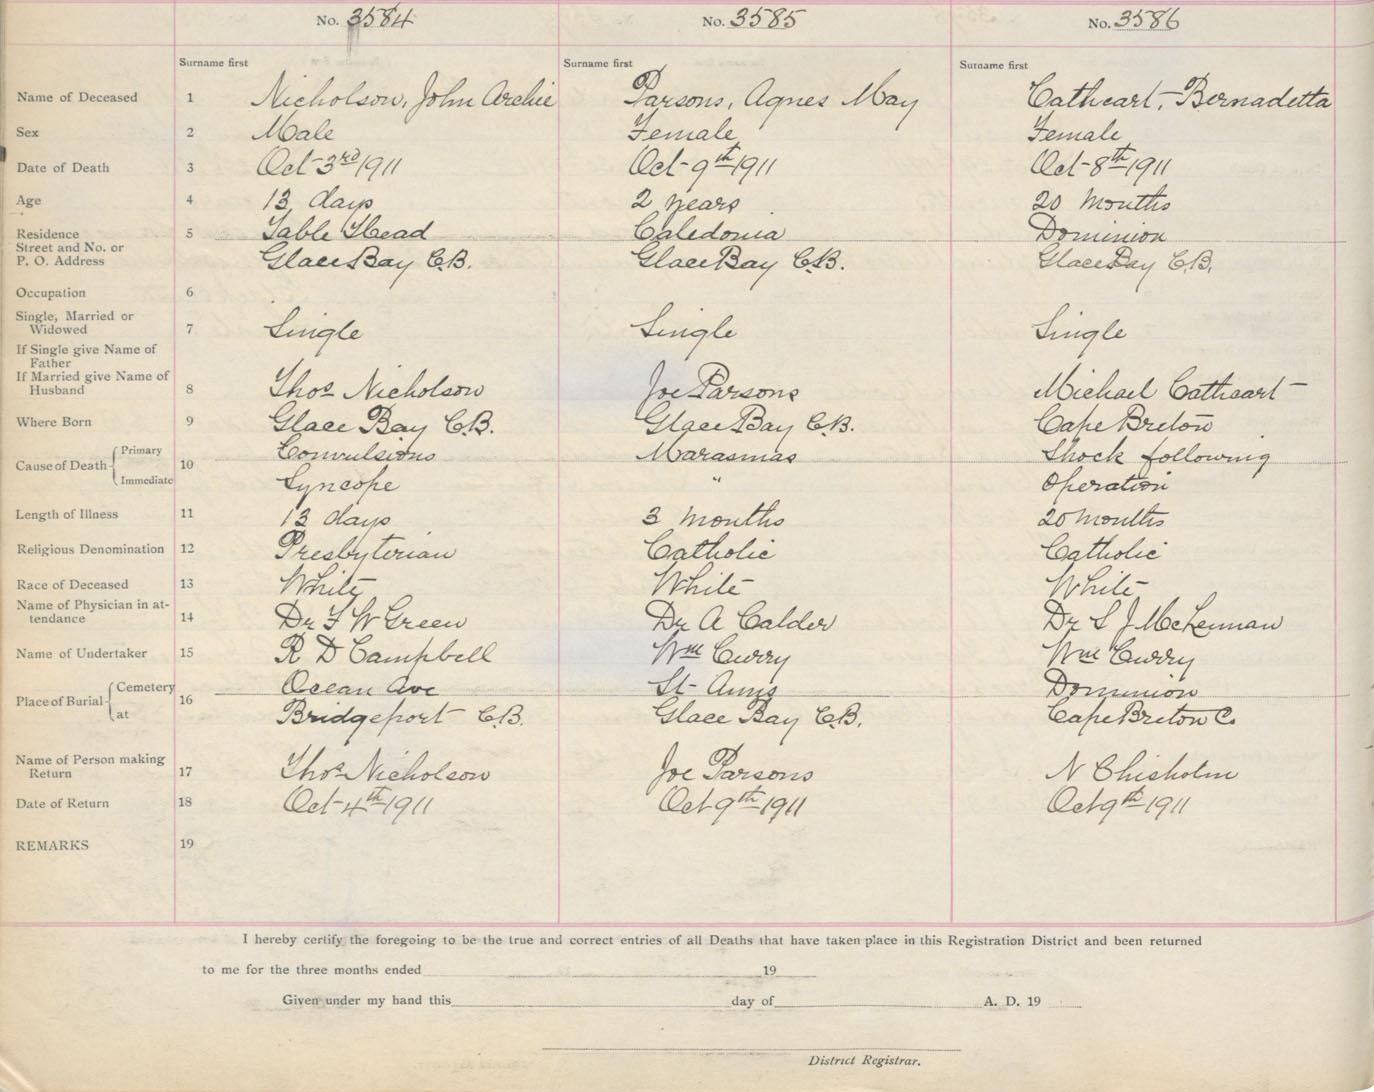 No. 3584 No. 3585 No. 3586
Surname first Surname first Surname first
Name of Deceased 1 Nicholson, John Archie Parsons, Agnes May Cathcart, Bernadetta
Sex 2 Male Female Female
Date of Death 3 Oct 3rd 1911 Oct 9th 1911 Oct 8th 1911
Age 4 13 days 2 years 20 Months
Residence 5 Table Head Caledonia Dominion
Street and No. or
P. O. Address Glace Bay C.B. Glace Bay C.B. Glace Bay C.B.
Occupation 6
Single, Married or
Widowed 7 Single Single Single
If Single give Name of
Father
If Married give Name of
Husband 8 Thos Nicholson Joe Parsons Michael Cathcart
Where Born 9 Glace Bay C.B. Glace Bay C.B. Cape Breton
Cause of Death Primary 10 Convulsions Marasmas Shock following
Immediate Syncope " operation
Length of Illness 11 13 days 3 months 20 months
Religious Denomination 12 Presbyterian Catholic Catholic
Race of Deceased 13 White White White
Name of Physician in at-
tendance 14 Dr F W Green Dr A Calder Dr S J McLennan
Name of Undertaker 15 R D Campbell Wm Curry Wm Curry
Place of Burial Cemetery 16 Ocean Ave St Anns Dominion
at Bridgeport C.B. Glace Bay C.B. Cape Breton Co
Name of Person making
Return 17 Thos Nicholson Joe Parsons N Chisholm
Date of Return 18 Oct 4th 1911 Oct 9th 1911 Oct 9th 1911
REMARKS 19
I hereby certify the foregoing to be the true and correct entries of all Deaths that have taken place in this Registration District and been returned
to me for the three months ended 19
Given under my hand this day of A. D. 19
District Registrar.